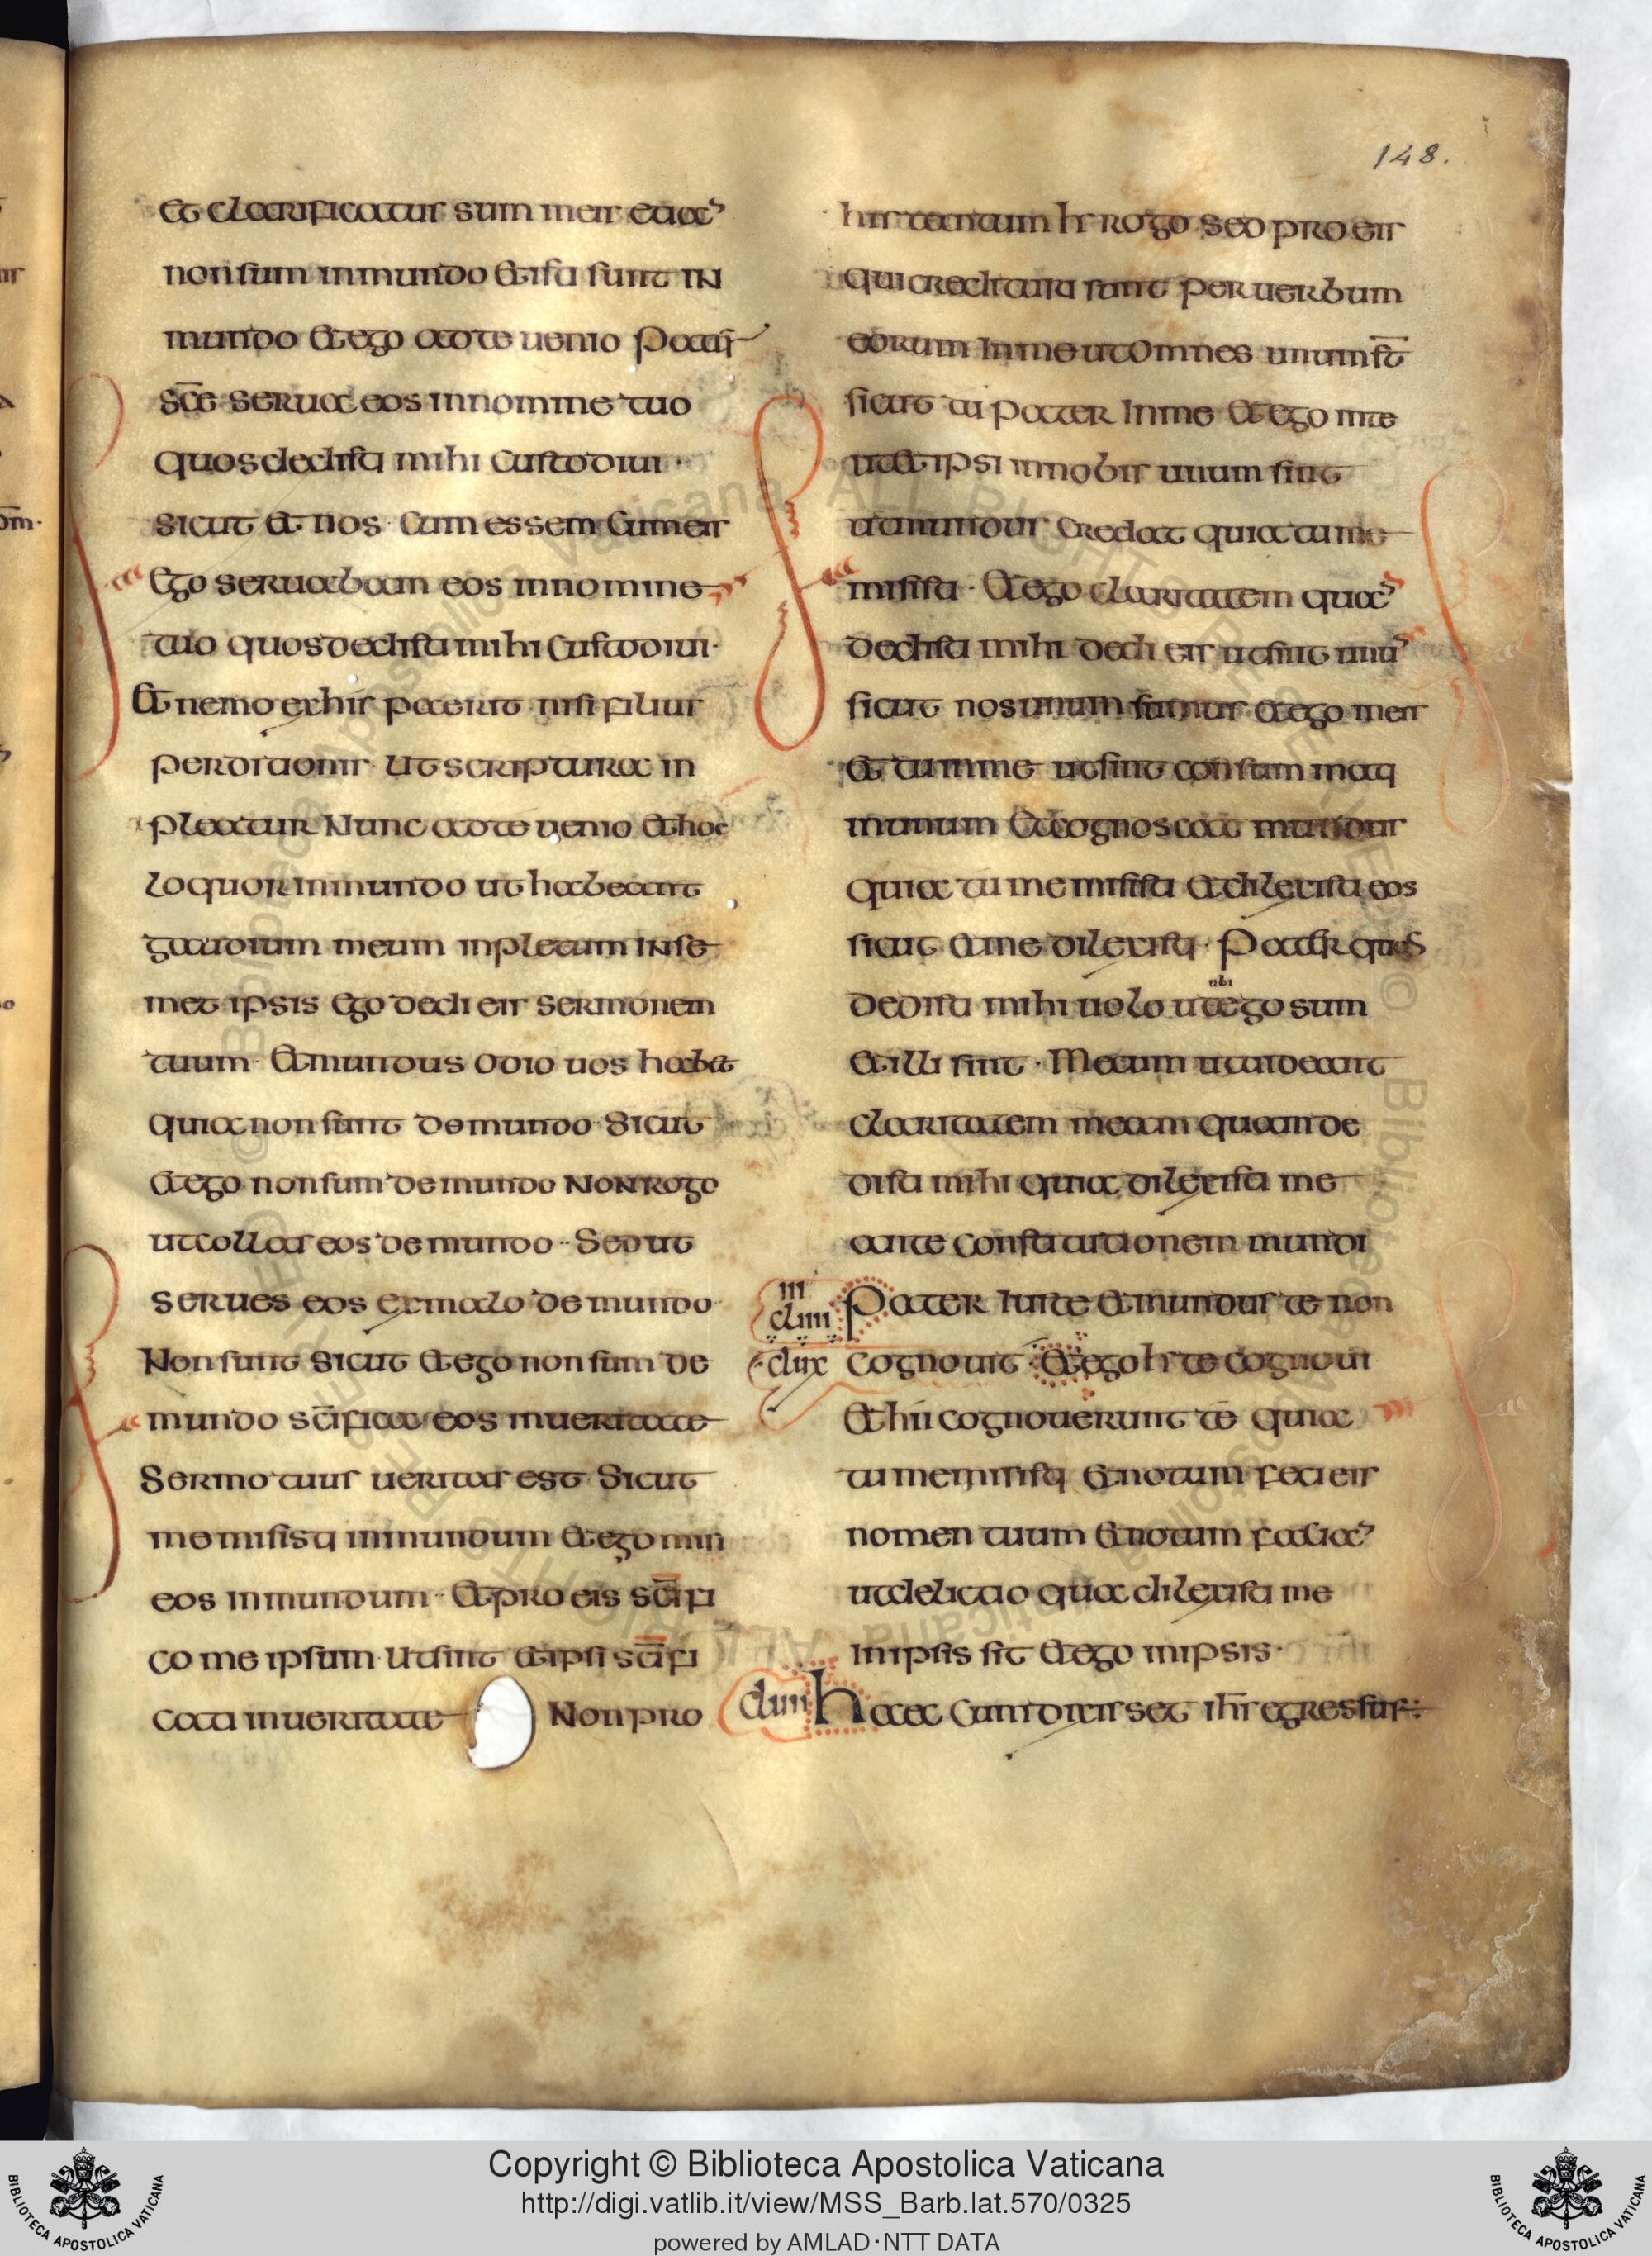 148.
et clarificatus sum in eis et iā
non sum in mundo et isti sunt IN
mundo et ego ad te uenio Pat̄r
sc̄e serua eos in nomine tuo
quos dedisti mihi custodiui ·
sicut et nos · Cum essem cum eis
ego seruabam eos in nomine
tuo quos dedisti mihi custodiui ·
et nemo ex his paeriit nisi filius
perditionis · Ut scriptura in
pleatur Nunc ad te uenio et hoc
loquor in mundo ut habeant
gaudium meum inpletum IN se
met ipsis ego dedi eis sermonem
tuum · et mundus odio uos habet
quia non sunt de mundo · Sicut
et ego non sum de mundo NON ROGO
ut tollas eos de mundo · Sed ut
serues eos ex malo de mundo
Non sunt sicut et ego non sum de
mundo sc̄ifica eos in ueritate
Sermo tuus ueritas est · Sicut
me misisti in mundum et ego misi
eos in mundum · et pro eis sc̄ifi
co me ipsum · Ut sint et ipsi sc̄ifi
cati in ueritate Non pro
his tantum h̄ rogo sed pro eis
qui credituri sunt per uerbum
eorum in me ut omnes unum st̄
sicut tu pater in me et ego in te
ut et ipsi in nobis unum sint
ut mundus credat quia tu me
misisti · et ego claritatem quā
dedisti mihi dedi eis ut sint unū
sicut nos unum sumus et ego in eis
et tu in me ut sint consummati
in unum et cognoscat mundus
quia tu me misisti et dilexisti eos
sicut et me dilexisti · Pater quos
ubi
dedisti mihi uolo ut ego sum
et illi sint · Mecum ut uideant
claritatem meam quam de
disti mihi quia dilexisti me
ante constitutionem mundi
Pater iuste et mundus te non
cognouit · et ego h̄ te cognoui
et hii cognouerunt te quia
tu me misisti et notum feci eis
nomen tuum et notum faciā
ut delictio qua dilexisti me
in ipsis sit et ego in ipsis ·
haec cum dixisset ih̄s egressus :
Copyright © Biblioteca Apostolica Vaticana
http://digi.vatlib.it/view/MSS_Barb.lat.570/0325
powered by AMLAD·NTT DATA
BIBLIOTECA APOSTOLICA VATICANA
BIBLIOTECA APOSTOLICA VATICANA